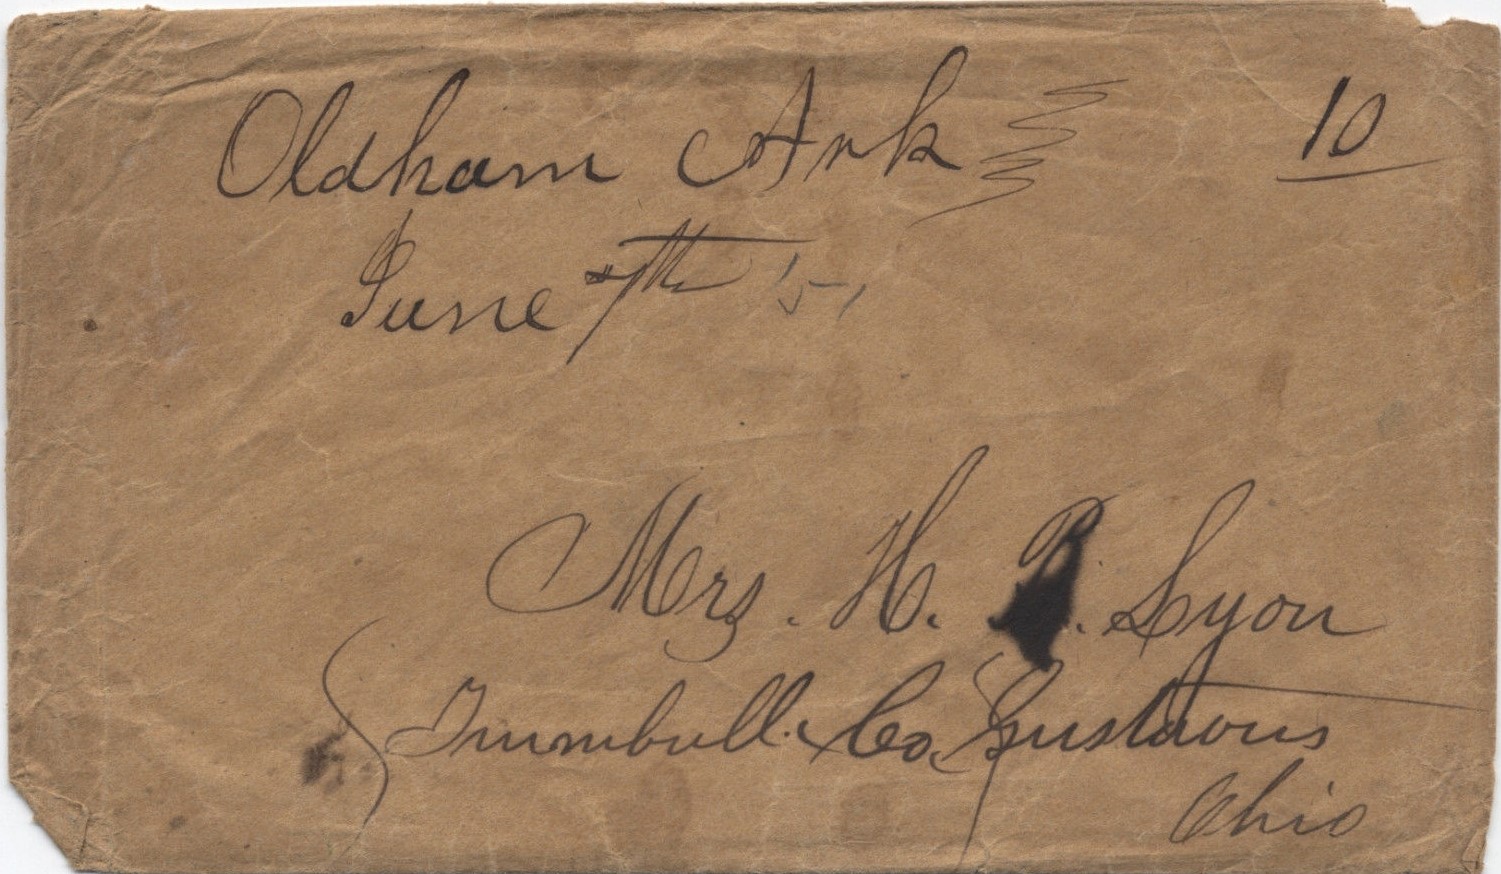 Oldham Ark 10
June 7th
Mrs. H. B. Lyon
Trumbull. Co. Gustavus
Ohio